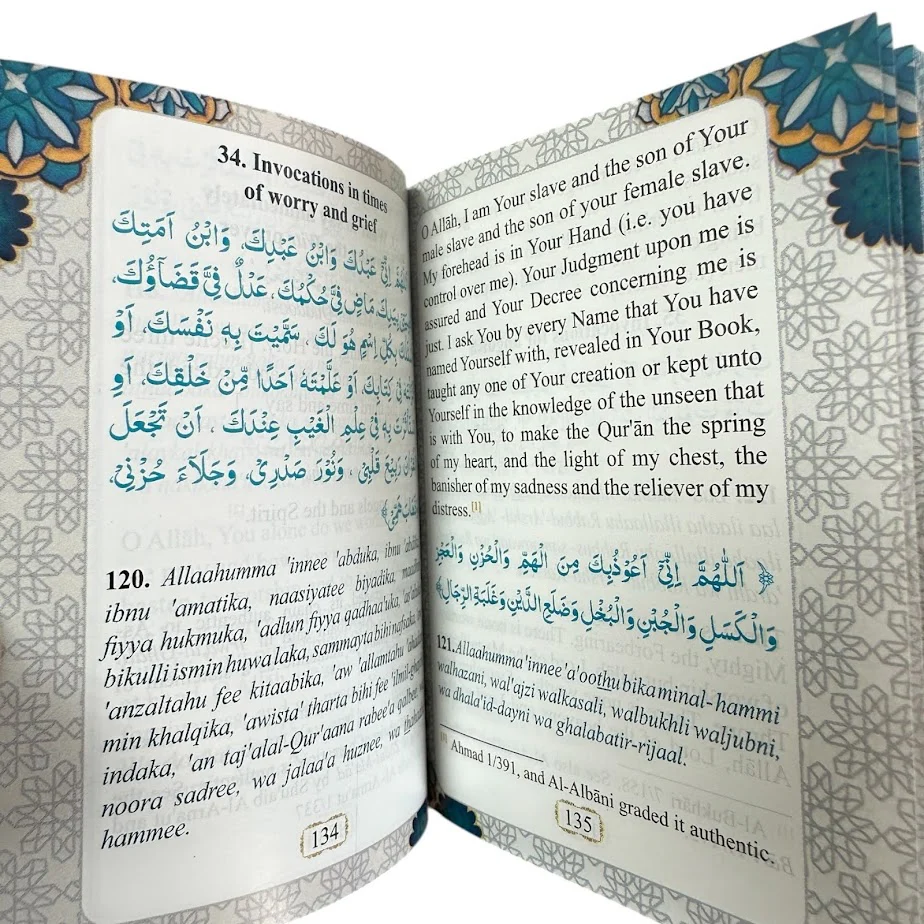 34. Invocations in times
of worry and grief
اِنِّیْ عَبْدُكَ وَابْنُ عَبْدِكَ، وَابْنُ اَمَتِكَ
مَاضٍ فِیَّ حُكْمُكَ، عَدْلٌ فِیَّ قَضَآؤُكَ،
بِكُلِّ اسْمٍ هُوَ لَكَ، سَمَّیْتَ بِهٖ نَفْسَكَ، اَوْ
فِیْ كِتَابِكَ، اَوْ عَلَّمْتَهٗ اَحَدًا مِّنْ خَلْقِكَ، اَوِ
بِهٖ فِیْ عِلْمِ الْغَیْبِ عِنْدَكَ، اَنْ تَجْعَلَ
رَبِیْعَ قَلْبِیْ، وَنُوْرَ صَدْرِیْ، وَجَلَآءَ حُزْنِیْ،
هَمِّیْ﴾
120. Allaahumma 'innee 'abduka, ibnu
ibnu 'amatika, naasiyatee biyadika,
fiyya hukmuka, 'adlun fiyya qadhaa'uka,
bikulli ismin huwa laka, sammayta bihi nafsaka,
'anzaltahu fee kitaabika, 'aw 'allamtahu
min khalqika, 'awista' tharta bihi fee 'ilmil-
indaka, 'an taj'alal-Qur'aana rabee'a
noora sadree, wa jalaa'a huznee, wa
hammee.
134
O Allāh, I am Your slave and the son of Your
male slave and the son of your female slave.
My forehead is in Your Hand (i.e. you have
control over me). Your Judgment upon me is
assured and Your Decree concerning me is
just. I ask You by every Name that You have
named Yourself with, revealed in Your Book,
taught any one of Your creation or kept unto
Yourself in the knowledge of the unseen that
is with You, to make the Qur'ān the spring
of my heart, and the light of my chest, the
banisher of my sadness and the reliever of my
distress.[1]
﴿ اَللّٰهُمَّ اِنِّیْٓ اَعُوْذُبِكَ مِنَ الْهَمِّ وَالْحُزْنِ وَالْعَجْزِ
وَالْكَسَلِ وَالْجُبْنِ وَالْبُخْلِ وَضَلَعِ الدَّیْنِ وَغَلَبَةِ الرِّجَالِ﴾
121. Allaahumma 'innee 'a'oothu bika minal-hammi
walhazani, wal'ajzi walkasali, walbukhli waljubni,
wa dhala'id-dayni wa ghalabatir-rijaal.
[1] Ahmad 1/391, and Al-Albāni graded it authentic.
135